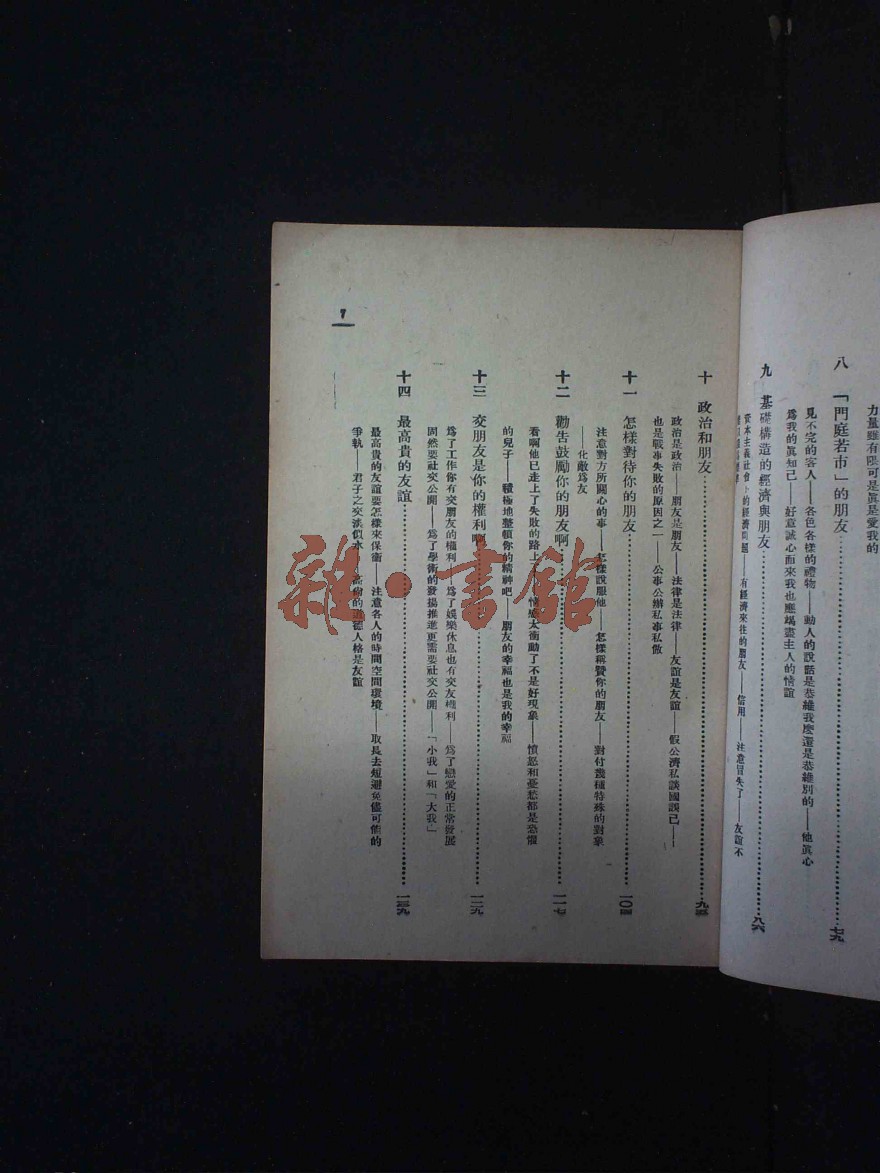 力量雖有限可是眞是愛我的
八 「門庭若市」的朋友 七九
見不完的客人——各色各樣的禮物——動人的說話是恭維我麽還是恭維別的——他眞心
爲我的眞知己——好意誠心而來我也應竭盡主人的情誼
九 基礎構造的經濟與朋友 八六
資本主義社會下的經濟問題——有經濟來往的朋友——信用——注意冒失了——友誼不
十 政治和朋友 九五
政治是政治——朋友是朋友——法律是法律——友誼是友誼——假公濟私談國誤己——
也是戰事失敗的原因之一——公事公辦私事私做
十一 怎樣對待你的朋友 一〇四
注意對方所關心的事——怎樣說服他——怎樣稱贊你的朋友——對付幾種特殊的對象
——化敵爲友
十二 勸告鼓勵你的朋友啊 一一七
看啊他已走上了失敗的路上——情感太衝動了不是好現象——憤怒和憂愁都是恐懼
的兒子——積極地整頓你的精神吧——朋友的幸福也是我的幸福
十三 交朋友是你的權利啊 一二九
爲了工作你有交朋友的權利——爲了娛樂休息也有交友權利——爲了戀愛的正常發展
固然要社交公開——爲了學術的發揚推進更需要社交公開——「小我」和「大我」
十四 最高貴的友誼 一三九
最高貴的友誼要怎樣來保衞——注意各人的時間空間環境——取長去短避免儘可能的
爭執——君子之交淡似水——高尙的道德人格是友誼
雜·書館